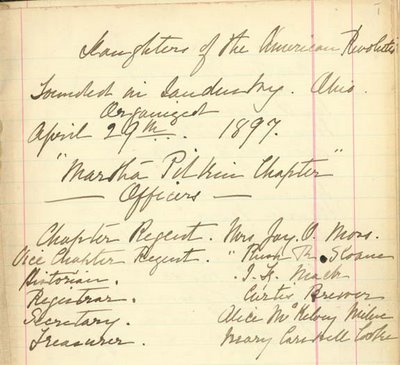 1
Daughters of the American Revolution
Founded in Sandusky. Ohio.
Organized
April 29th. 1897.
"Martha Pitkin Chapter"
— Officers —
Chapter Regent. Mrs Jay O. Moss.
Vice Chapter Regent. " Rush R. Sloane
Historian. " I. F. Mack
Registrar. Curtis Brewer
Secretary. Alice McKelvey Milne
Treasurer. Mary Caswell Cooke